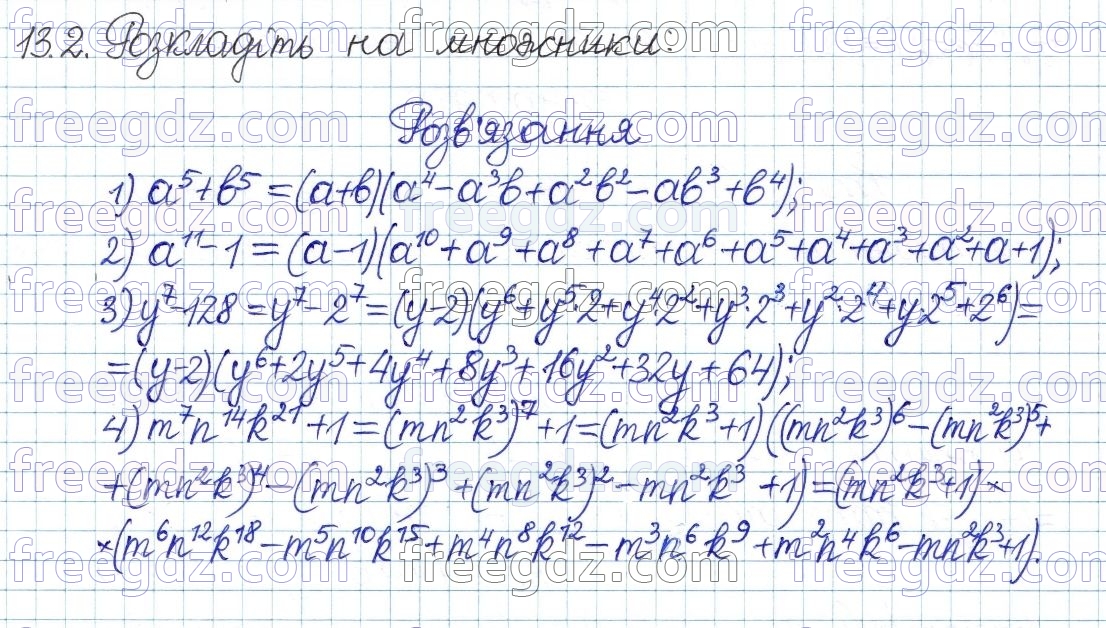 13.2. Розкладіть на множники:
Розв'язання
1) a⁵+b⁵=(a+b)(a⁴-a³b+a²b²-ab³+b⁴);
2) a¹¹-1=(a-1)(a¹⁰+a⁹+a⁸+a⁷+a⁶+a⁵+a⁴+a³+a²+a+1);
3) y⁷-128=y⁷-2⁷=(y-2)(y⁶+y⁵·2+y⁴·2²+y³·2³+y²·2⁴+y·2⁵+2⁶)=
=(y-2)(y⁶+2y⁵+4y⁴+8y³+16y²+32y+64);
4) m⁷n¹⁴k²¹+1=(mn²k³)⁷+1=(mn²k³+1)((mn²k³)⁶-(mn²k³)⁵+
+(mn²k³)⁴-(mn²k³)³+(mn²k³)²-mn²k³+1)=(mn²k³+1)×
×(m⁶n¹²k¹⁸-m⁵n¹⁰k¹⁵+m⁴n⁸k¹²-m³n⁶k⁹+m²n⁴k⁶-mn²k³+1).